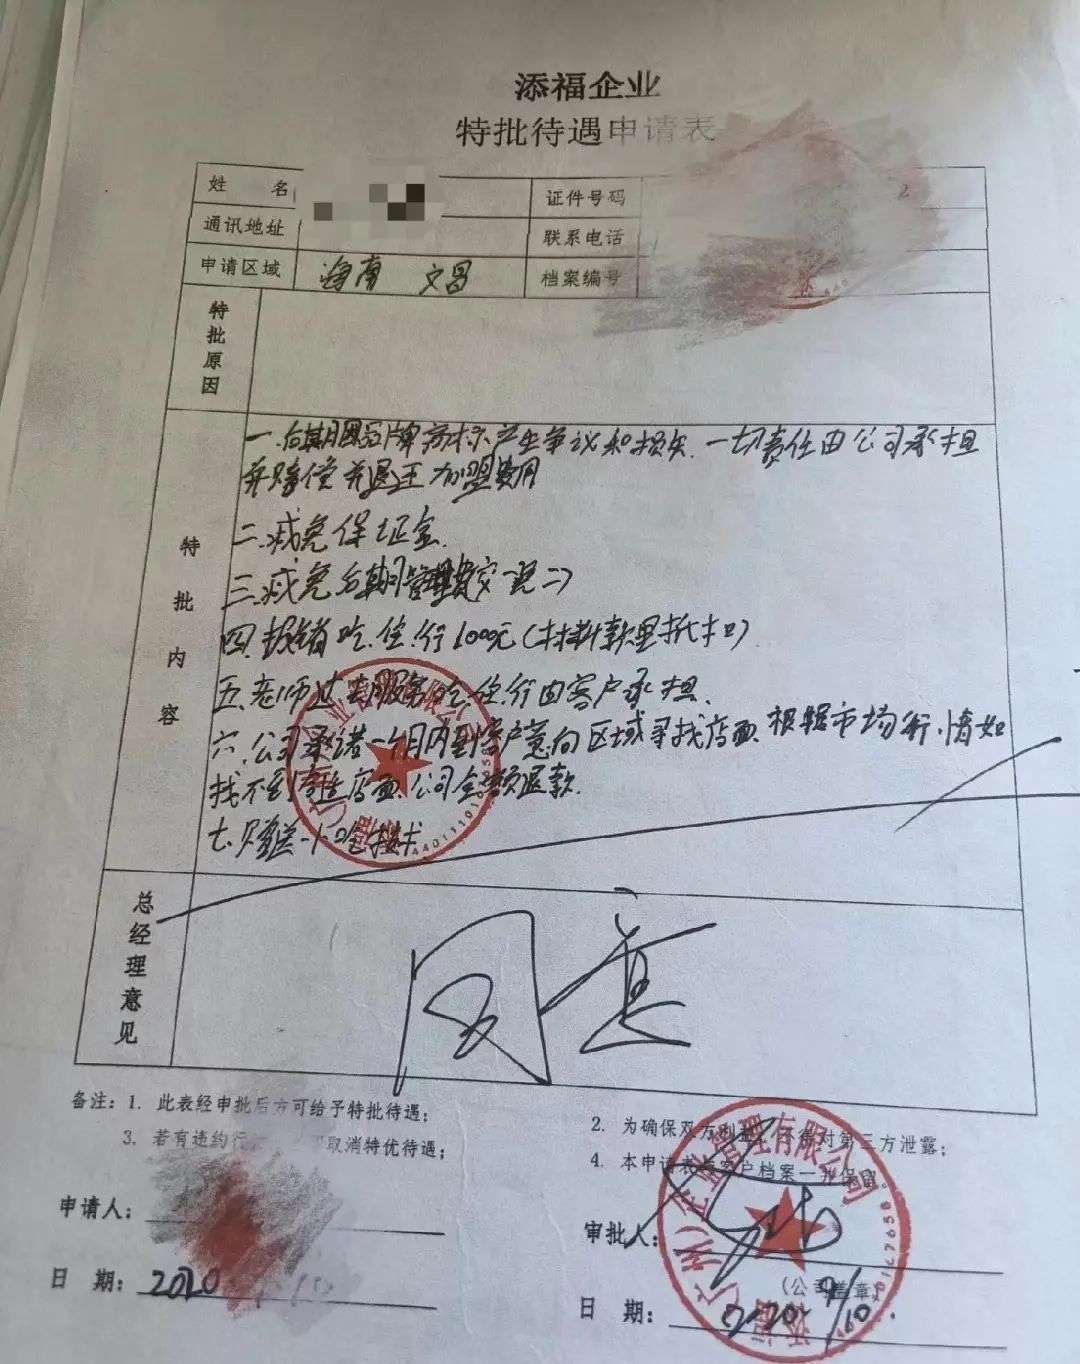 添福企业
特批待遇申请表
姓 名
证件号码 2
通讯地址
联系电话
申请区域 海南 文昌
档案编号
特批原因
特批内容
一.后期因品牌商标产生争议和损失.一切责任由公司承担
并赔偿并退还加盟费用
二.减免保证金.
三.减免后期管理费
四.报销吃.住.行1000元(材料款里抵扣)
五.老师过去服务吃.住.行由客户承担.
六.公司承诺一个月内到客户意向区域寻找店面.根据市场行.情如
找不到合适店面.公司全额退款.
七.赠送一小吃技术
总经理意见
同意
备注：1. 此表经申批后方可给予特批待遇；
2. 为确保双方利益，不得对第三方泄露；
3. 若有违约行 取消特优待遇；
4. 本申请表与客户档案一并保留。
申请人：
审批人：
(公司盖章)
日 期：2020
日 期：2020 9/10.
添福(广州)企业管理有限公司